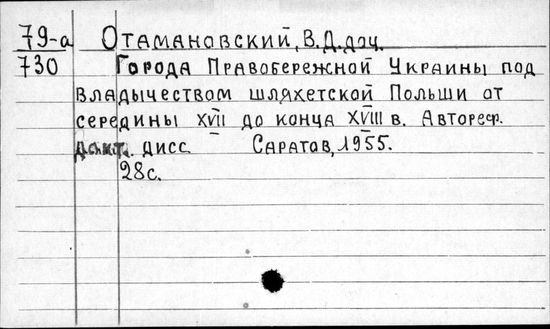 79-а Отамановский, В.Д. доц.
730 Города Правобережной Украины под
владычеством шляхетской Польши от
середины XVII до конца XVIII в. Автореф.
докт. дисс. Саратов, 1955.
28с.